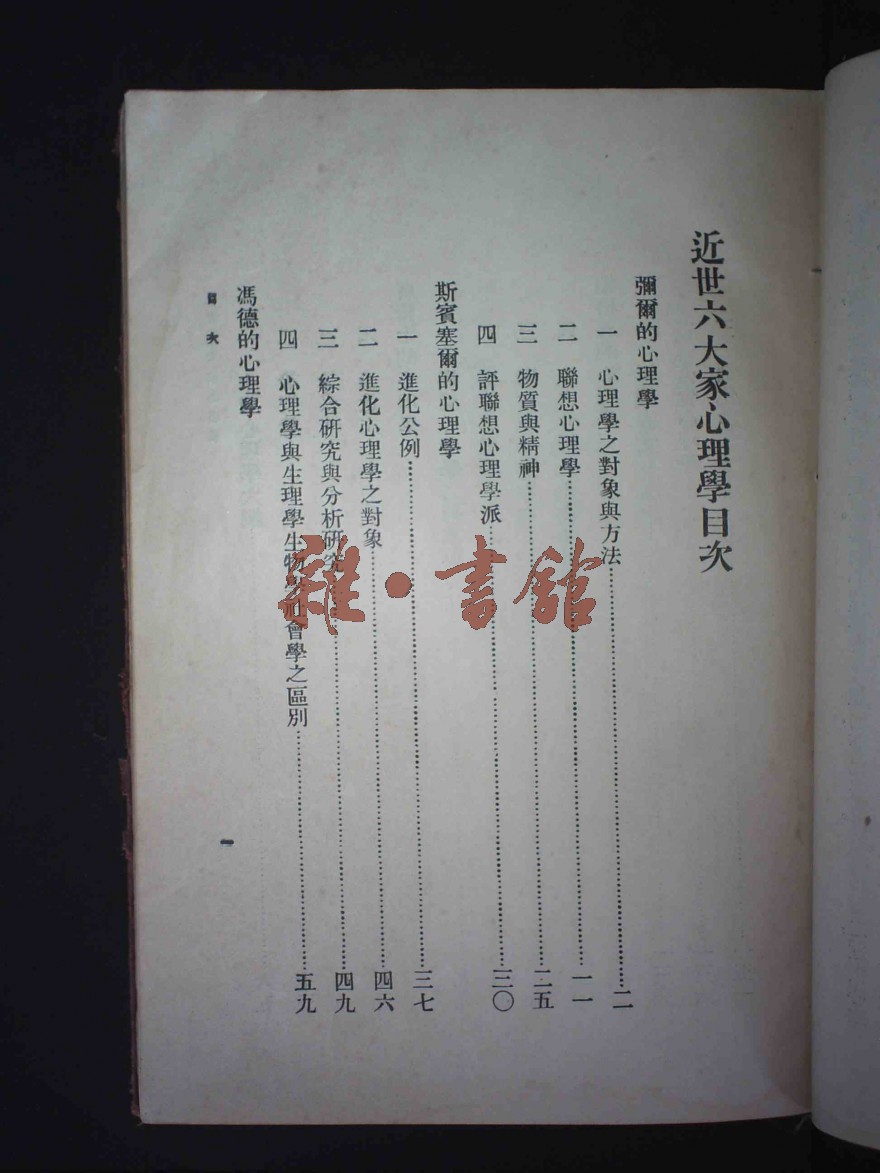 近世六大家心理學目次
彌爾的心理學
一 心理學之對象與方法……二
二 聯想心理學……一一
三 物質與精神……二五
四 評聯想心理學派……三〇
斯賓塞爾的心理學
一 進化公例……三七
二 進化心理學之對象……四六
三 綜合研究與分析研究……四九
四 心理學與生理學生物學社會學之區別……五九
馮德的心理學
目次
一
雜·書館